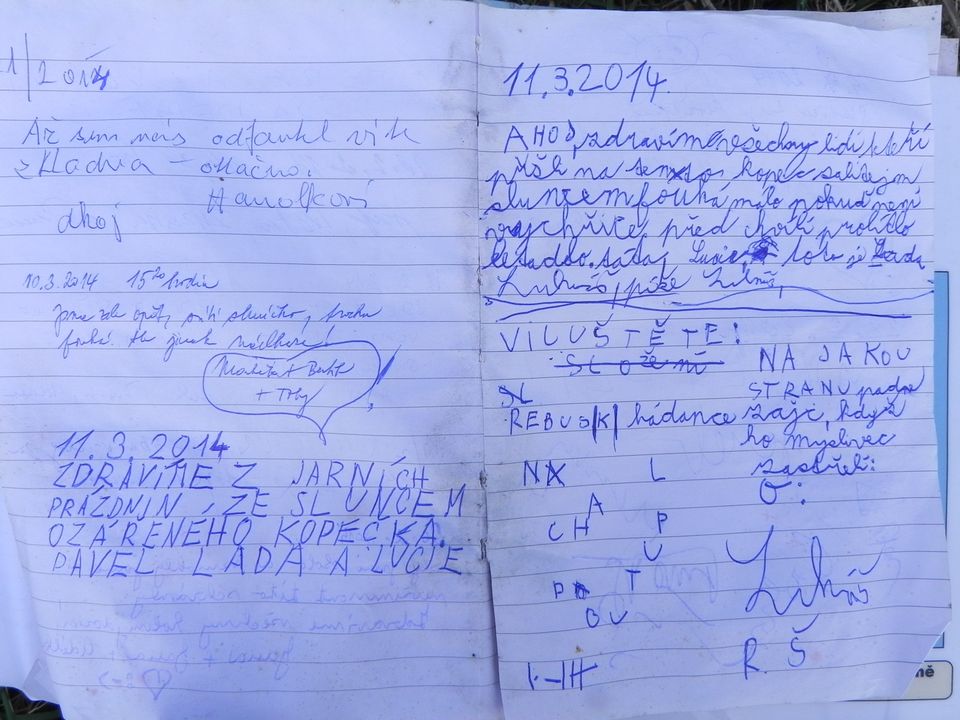 1/2014
Až sem nás odfoukl vítr
z Kladna
ahoj
10.3.2014 15 20 hodin
Jsme zde opět, svítí sluníčko, trochu
fouká. jinak nádhera!
Markéta +
+
11.3.2014
ZDRAVÍME Z JARNÍCH
PRÁZDNIN, ZE SLUNCEM
OZÁŘENÉHO KOPEČKA.
PAVEL LADA A LUCIE
11.3.2014.
AHOJ, zdravíme všechny lidi kteří
přišli na tento kopec zalitejm
sluncem fouká málo pokud není
vychřice. před chvílí prolítlo
letadlo. táta, Lucie, toto je
Lukáš, píše Lukáš,
VILUŠTĚTE!
SLOŽENÍ
REBUS/K/ hádance
NA JAKOU
STRANU padne
zajíc, když
ho myslivec
zastřelí:
O:
N L
A
CH P
U
P T
BU
Lukáš
R. Š
mě